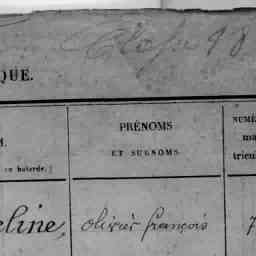 Classe 18
QUE.
M.
en batarde.)
PRÉNOMS
ET SURNOMS.
NUMÉ
ma
tricu
eline,
olivier françois
7